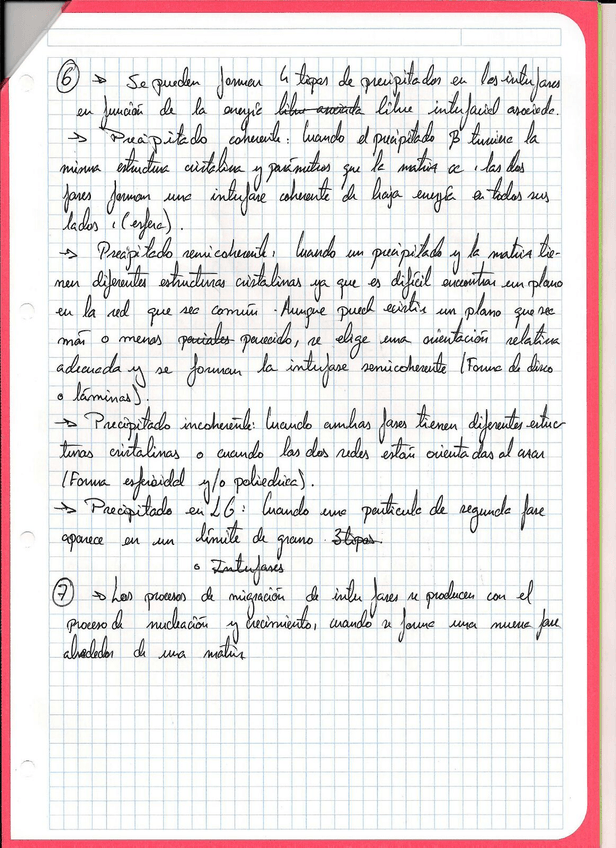 6 → Se pueden forman 4 tipos de precipitados en las interfases
en función de la energía libre asociada libre interfacial asociada.
→ Precipitado coherente: Cuando el precipitado β tuviera la
misma estructura cristalina y parámetros que la matriz α, las dos
fases forman una interfase coherente de baja energía en todos sus
lados, (esfera).
→ Precipitado semicoherente, Cuando un precipitado y la matriz tie-
nen diferentes estructuras cristalinas ya que es difícil encontrar un plano
en la red que sea común. Aunque puede existir un plano que sea
más o menos parciales parecido, se elige una orientación relativa
adecuada y se forman la interfase semicoherente (Forma de disco
o láminas).
→ Precipitado incoherente: Cuando ambas fases tienen diferentes estruc-
turas cristalinas o cuando las dos redes están orientadas al azar
(Forma esferoidal y/o poliedrica).
→ Precipitado en LG: Cuando una particula de segunda fase
aparece en un límite de grano. 3 tipos
o Interfases
7 → Los procesos de migración de inter fases se producen con el
proceso de nucleación y crecimiento, cuando se forma una nueva fase
alrededor de una matriz